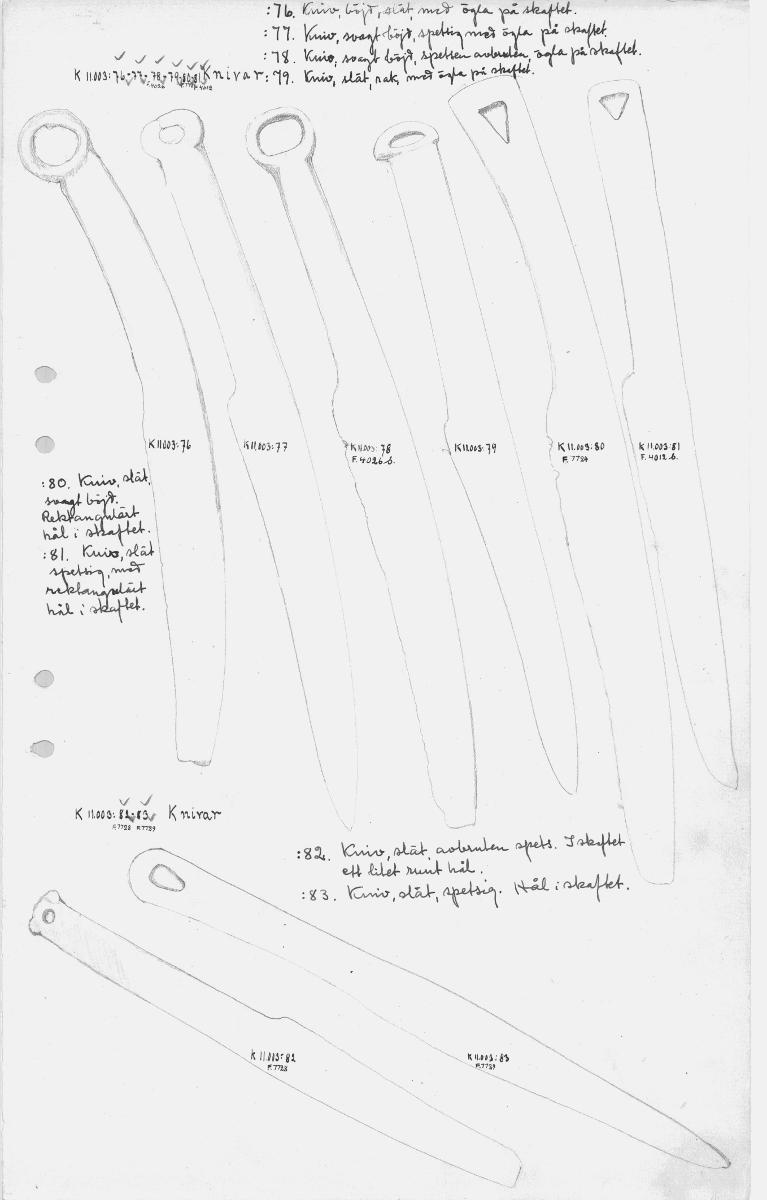 :76. Kniv, böjd, slät, med ögla på skaftet.
:77. Kniv, svagt böjd, spetsig med ögla på skaftet.
:78. Kniv, svagt böjd, spetsen avbruten, ögla på skaftet.
K 11.003:76-77-78-79-80-81 Knivar :79. Kniv, slät, rak, med ögla på skaftet.
K 11.003:76
K 11.003:77
K 11.003:78
F. 4026.b.
K 11.003:79
K 11.003:80
F. 7724
K 11.003:81
F. 4012.b.
:80. Kniv, slät,
svagt böjd.
Rektangulärt
hål i skaftet.
:81. Kniv, slät
spetsig, med
rektangulärt
hål i skaftet.
K 11.003:82-83. Knivar
F.7723 F.7739
:82. Kniv, slät, avbruten spets. I skaftet
ett litet runt hål.
:83. Kniv, slät, spetsig. Hål i skaftet.
K 11.003:82
F.7723
K 11.003:83
F.7739